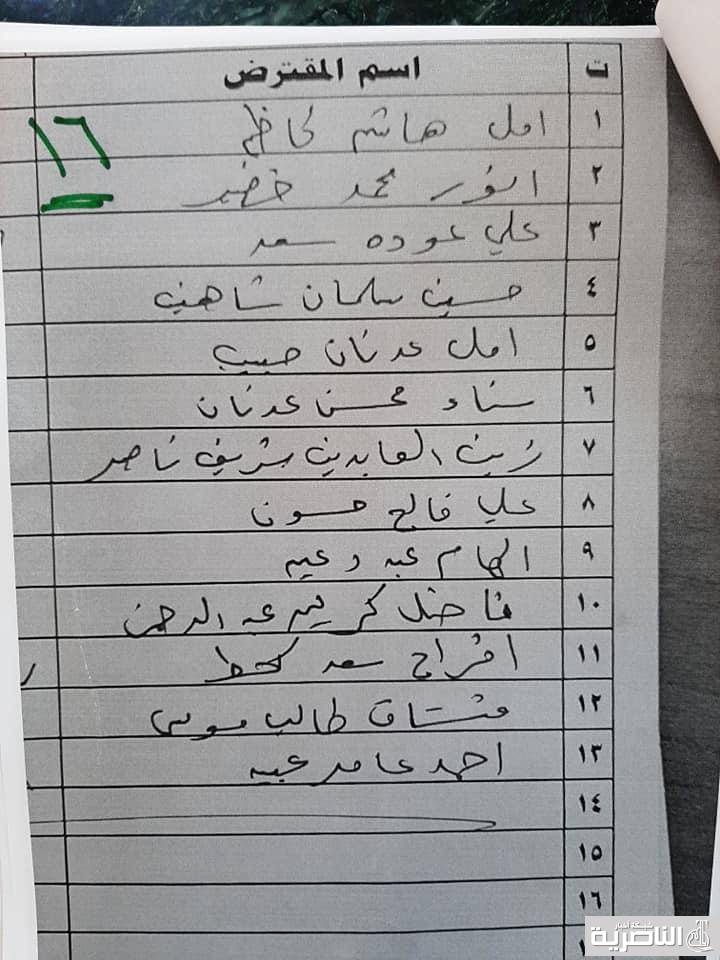 ت اسم المقترض
١٦
١ امل هاشم كاظم
٢ انور محمد خضير
٣ علي عوده سعد
٤ حسين سلمان شاهين
٥ امل عدنان حبيب
٦ سناء محسن عدنان
٧ زين العابدين شريف ناصر
٨ علي فالح حسون
٩ الهام عبد دعيم
١٠ فاضل كريم عبد الرحمن
١١ افراح سعد
١٢ مشتاق طالب موسى
١٣ احمد عامر
١٤
١٥
١٦
شبكة اخبار الناصرية